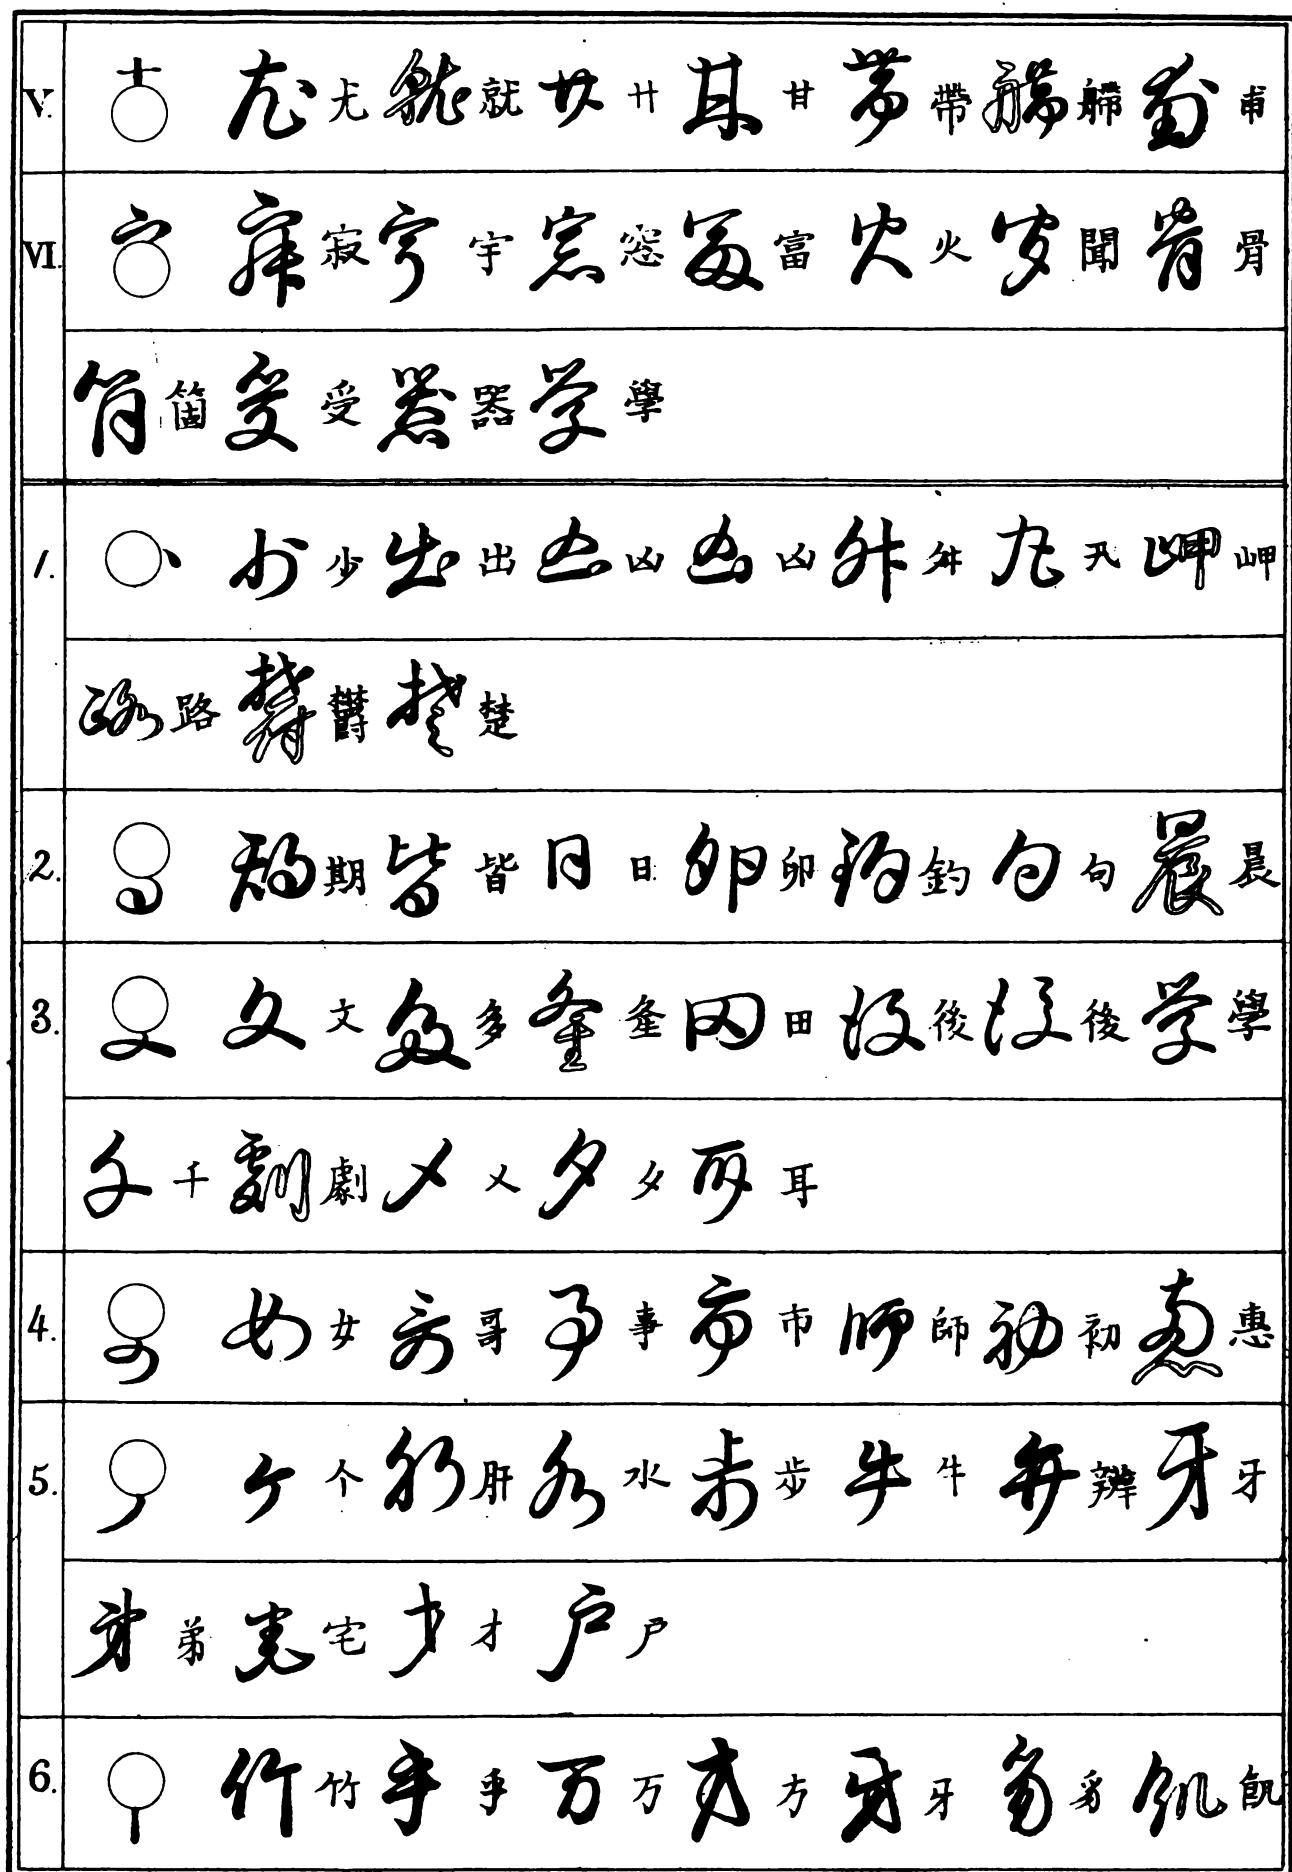 V. 尤 就 廿 甘 帶 艜 甫
VI. 寂 宇 窓 富 火 聞 骨
箇 受 器 學
1. 少 出 凶 凶 舛 岬
路 欝 楚
2. 期 皆 日 卯 釣 句 晨
3. 文 多 夆 田 後 後 學
千 劇 乂 夕 耳
4. 女 哥 事 市 師 初 惠
5. 个 肝 水 步 牛 辨 牙
弟 宅 才 戸
6. 竹 乎 万 方 牙 飢